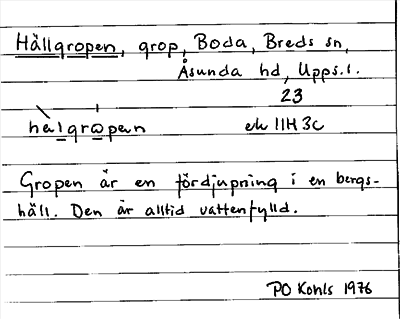 Hällgropen, grop, Boda, Breds sn,
Åsunda hd, Upps.l.
23
hälgropen ek 11H 3c
Gropen är en fördjupning i en bergs-
häll. Den är alltid vattenfylld.
PO Kohls 1976